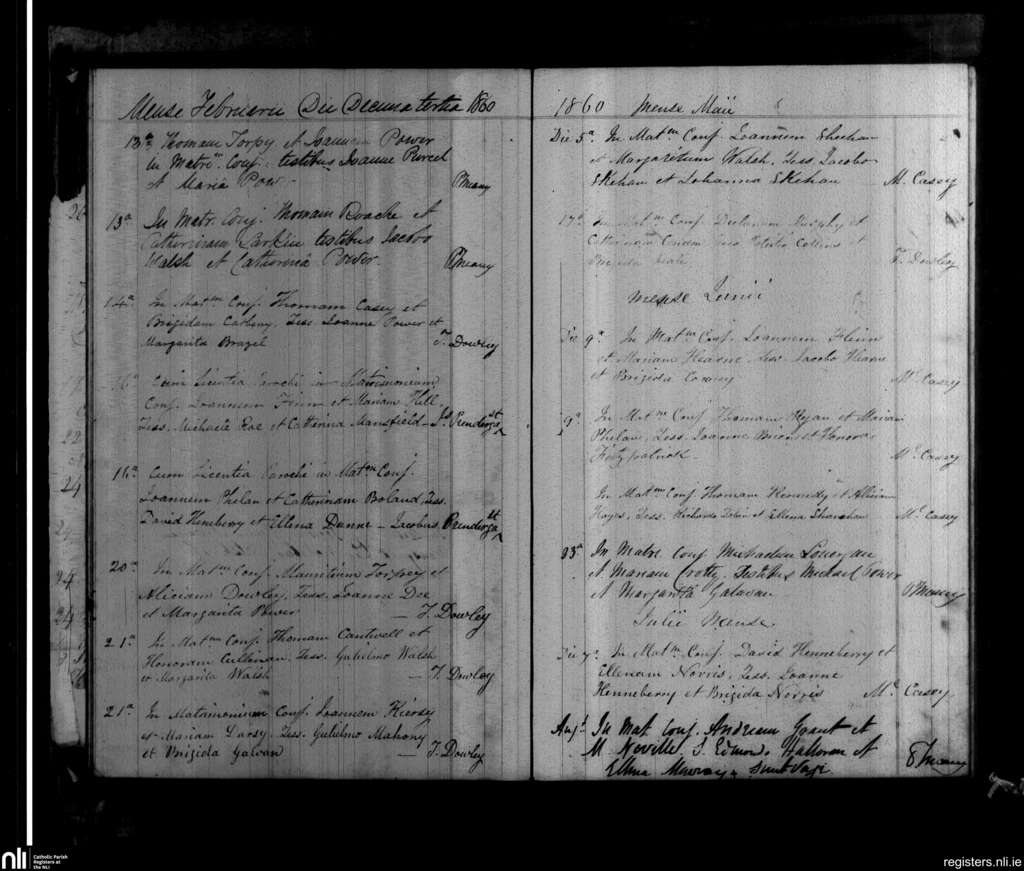 Mense Februarii Die Decima tertia 1860
13a Thomam Torpy et Joannam Power
in Matrim. Conj. testibus Joanne Purcel
et Maria Power
P Meany
13a In Matr. Conj. Thomam Roache et
Catherinam Larkin testibus Jacobo
Walsh et Catherina Power
P Meany
14a In Matm Conj. Thomam Casey et
Brigidam Carbeny. Tess. Joanne Power et
Margarita Brazel
T. Dowley
16a Cum licentia Parochi in Matrimonium
Conj. Joannem Finn et Mariam Hell
Tess. Michaele Roe et Catherina Mansfield - Js. Prendergast
16a Cum Licentia Parochi in Matm Conj.
Joannem Phelan et Catherinam Boland, Tess.
David Heneberry et Ellena Dunne - Jacobus Prendergast
20a In Matm Conj. Mauritium Torpey et
Aliciam Dowley, Tess. Joanne Dee
et Margarita Power
- T. Dowley
21a In Matm Conj. Thomam Cantwell et
Honoram Cullinan, Tess. Gulielmo Walsh
et Margarita Walsh
- T. Dowley
21a In Matrimonium Conj. Joannem Kiersy
et Mariam Darsy. Tess. Gulielmo Mahony
et Brigida Galvan
- T. Dowley
1860 Mense Maii
Die 5a In Matm Conj. Joannem Sheehan
et Margaritam Walsh. Tess. Jacobo
Skehan et Johanna Skehan
M. Casey
17a In Matm Conj. Declanum Murphy et
Catherinam Tess. Patritio Collins et
Brigida
T. Dowley
Mense Junii
Die 9a In Matm Conj. Joannem Flinn
et Mariam Hearne Tess. Jacobo Hearne
et Brigida
Ml. Casey
9a In Matm Conj Thomam Ryan et Mariam
Phelan, Tess. Joanne Brien et Honora
Fitzpatrick -
Ml. Casey
In Matm Conj Thomam Kennedy et
Hayes, Tess. Richardo Tobin et Ellena Shanahan
Ml. Casey
23a In Matre Conj Michaelem Lonergan
et Mariam Crotty, Testibus Michael Power
et Margarita Galavan
P Meany
Julii Mense
Die 7a In Matm Conj. David Henneberry et
Ellenam Norris, Tess. Joanne
Henneberry et Brigida Norris
Ml. Casey
Augt In Mat Conj. Andream Grant et
M. Neville. T. Edmond. Halloran et
Ellena Murray
P Meany
nli
Catholic Parish
Registers at
the NLI
registers.nli.ie